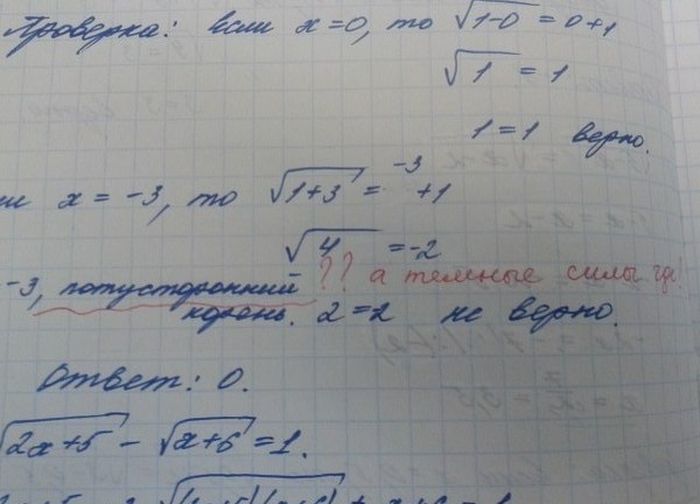 Проверка: если x=0, то √1-0 = 0+1
√1 = 1
1=1 верно.
x = -3, то √1+3 = -3 +1
√4 = -2
-3, потусторонний ?? а темные силы где!
корень. 2=2 не верно.
Ответ: 0.
√2x+5 - √x+6 = 1.